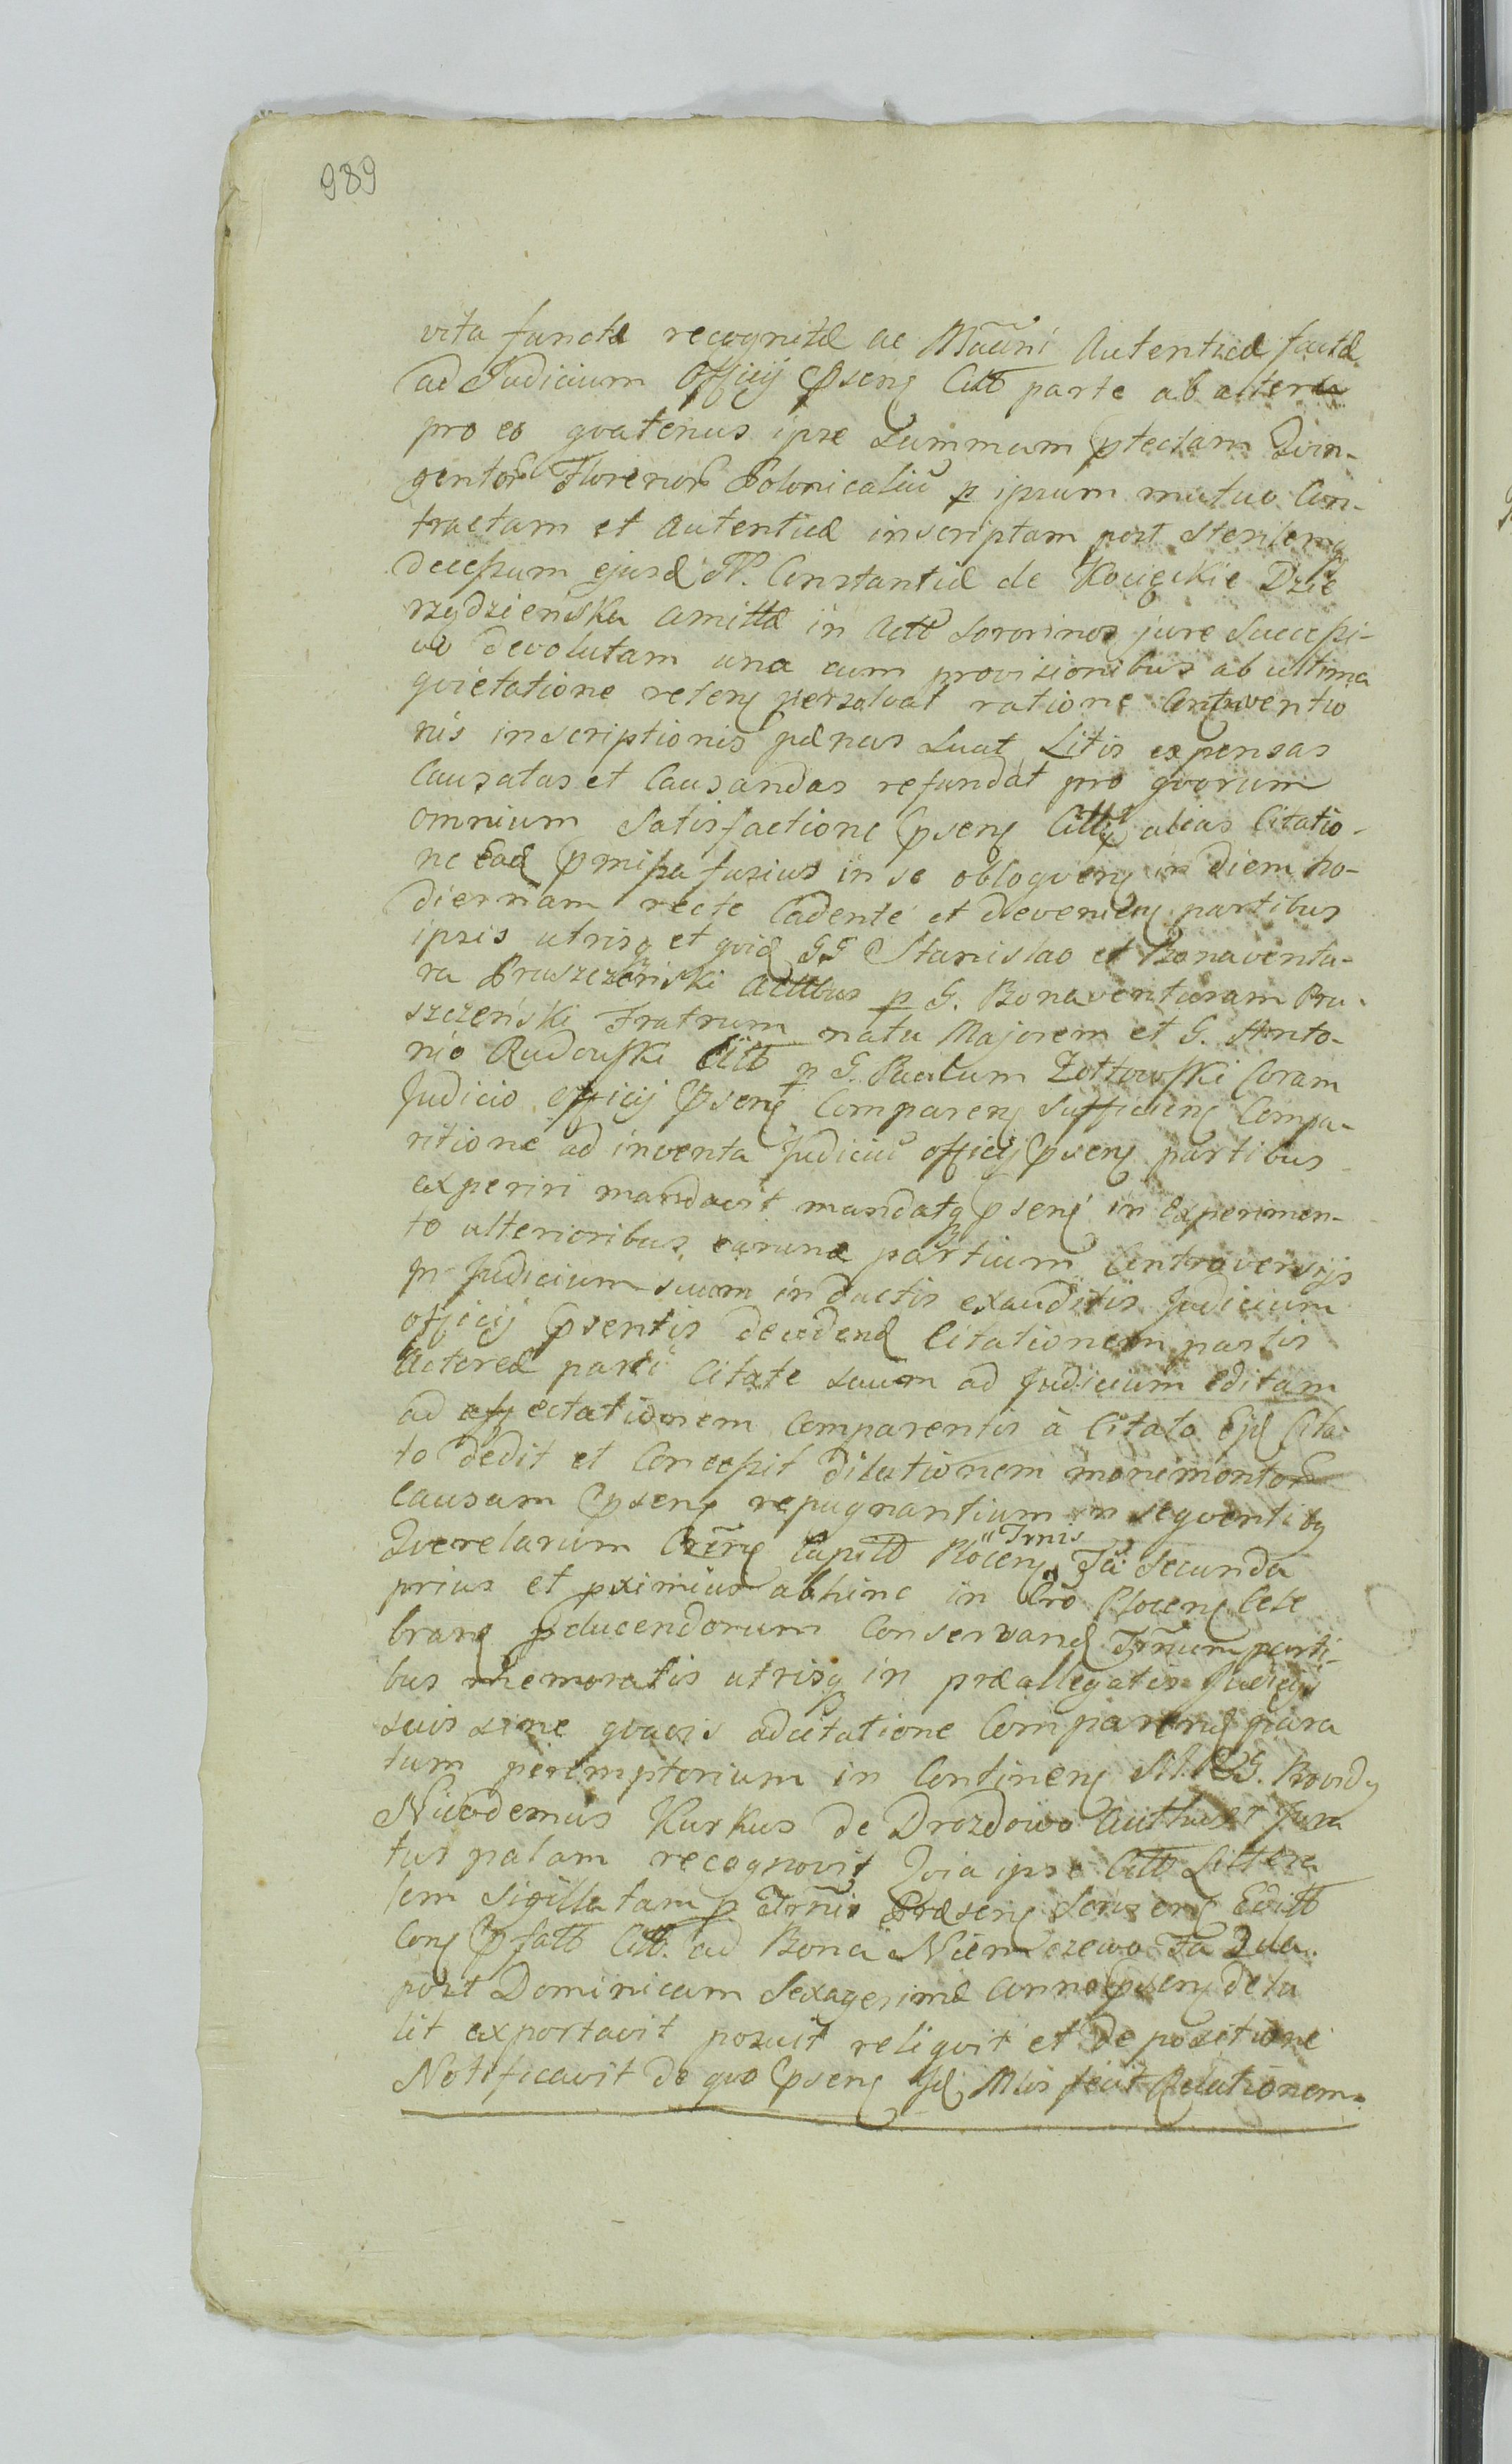 989
vita functæ recognitæ ac Autenticæ factæ
ad Judicium Officij Pseng Citt parte ab altera
pro eo qvatenus ipse Summam Ptectam Qvin-
gentor Florenor Polonicaliũ p ipsum mutuo Con-
tractam et Autenticæ inscriptam post sterilem
decessum ejusd M. Constantiæ de Kocięckie Dzie
rzgdzieńska amittæ in Actt Sororinos jure Successi-
vo devolutam una cum provisionibus ab ultima
qvietatione persolvat ratione Contraventio
nis inscriptionis pænas Luat Litis expensas
Causatas et Causandas refundat pro qvorum
omnium Satisfactione Pseng alias Citatio-
ne Ead Pmissa fusius in se obloqveng in diem ho-
diernam recte Cadente et deveniens partibus
ipsis utrisq et qvid GG Stanislao et Bonaventu-
ra Pruszczeński Acttbus p G. Bonaventuram Pru-
szczeński Fratrum natu Majorem et G. Anto-
nio Rudowski Citt p G. Paulum Żołtowski Coram
Judicio Officij Pseng Compareng Sufficieng Compa-
ritione ad inventa Judiciũ officij Pseng partibus
experiri mandavit mandatq Pseng in Experimen-
to ulterioribus earund partium Controversijs
in Judicium suum inductis exauditis Judicium
officij Psentis decedend Citationem partis
Actoreæ parti Citatæ suum ad Judicium Editam
ad affectationem Comparentis à Citato Ejd Cita
to dedit et Concessit dilationem monimentor
Causam Pseng repugnantium in seqventibq
Qverelarum Capitt Ploceng Trnis Fã Secunda
prius et pximius abhinc in Cro Ploceng Cele
brang pducendorum Conservand Trnum parti-
bus memoratis utrisq in præallegatis Judicijs
suis sine qvavis adcitatione Comparend para
tum peremptorium in Contineng Providq
Nicodemus Kurkus de Drozdowo Autthus et Jura
tus palam recognovit Qvia ipse Citt Littera
lem Sigillatam p Trnis Præseng Editt
Cong Pfatt Citt. ad Bona Niemczewo Fa 2da
post Dominicam Sexagesimæ Anno Pseng detu
lit exportavit posuit reliqvit et de positione
Notificavit de qvo Pseng Jd Mlis fecit Relationem.